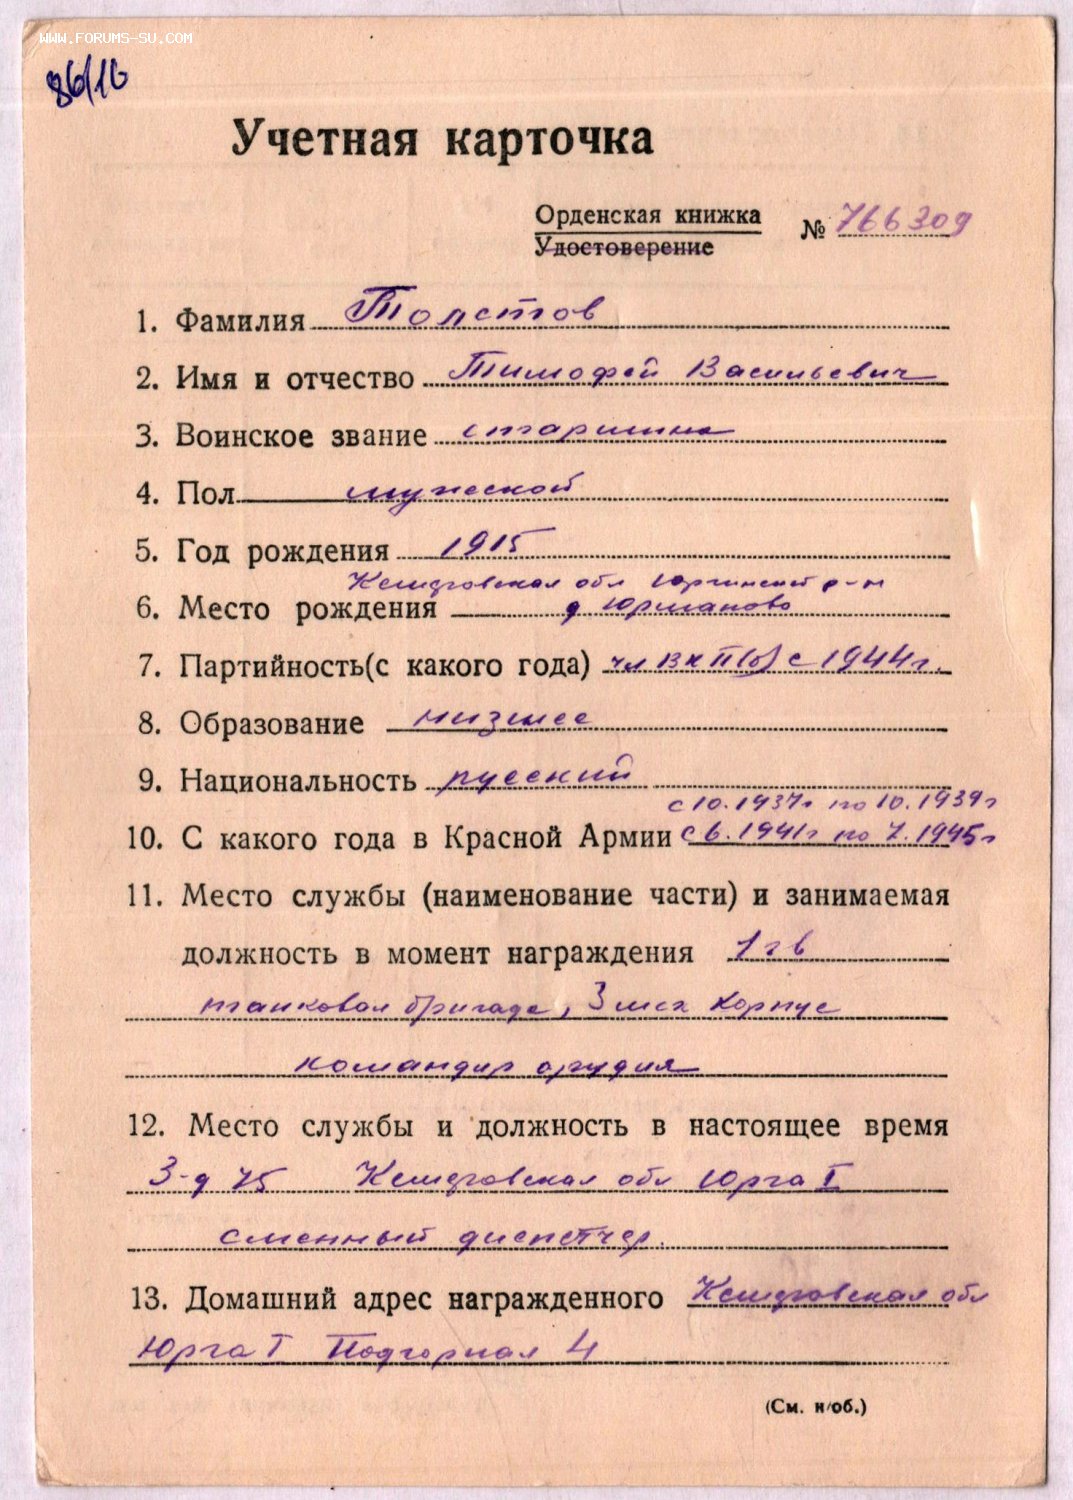 WWW.FORUMS-SU.COM
86/16
Учетная карточка
Орденская книжка
Удостоверение
№ 766309
1. Фамилия Толстов
2. Имя и отчество Тимофей Васильевич
3. Воинское звание старшина
4. Пол мужской
5. Год рождения 1915
Кемеровская обл Юргинский р-н
6. Место рождения д Юрманово
7. Партийность(с какого года) чл ВКП(б) с 1944г.
8. Образование низшее
9. Национальность русский
с 10.1937г по 10.1939г
10. С какого года в Красной Армии с 6.1941г по 7.1945г
11. Место службы (наименование части) и занимаемая
должность в момент награждения 1 гв
танковая бригада, 3 мех корпус
командир орудия
12. Место службы и должность в настоящее время
З-д 75 Кемеровская обл Юрга I
сменный диспетчер.
13. Домашний адрес награжденного Кемеровская обл
Юрга I Подгорная 4
(См. н/об.)